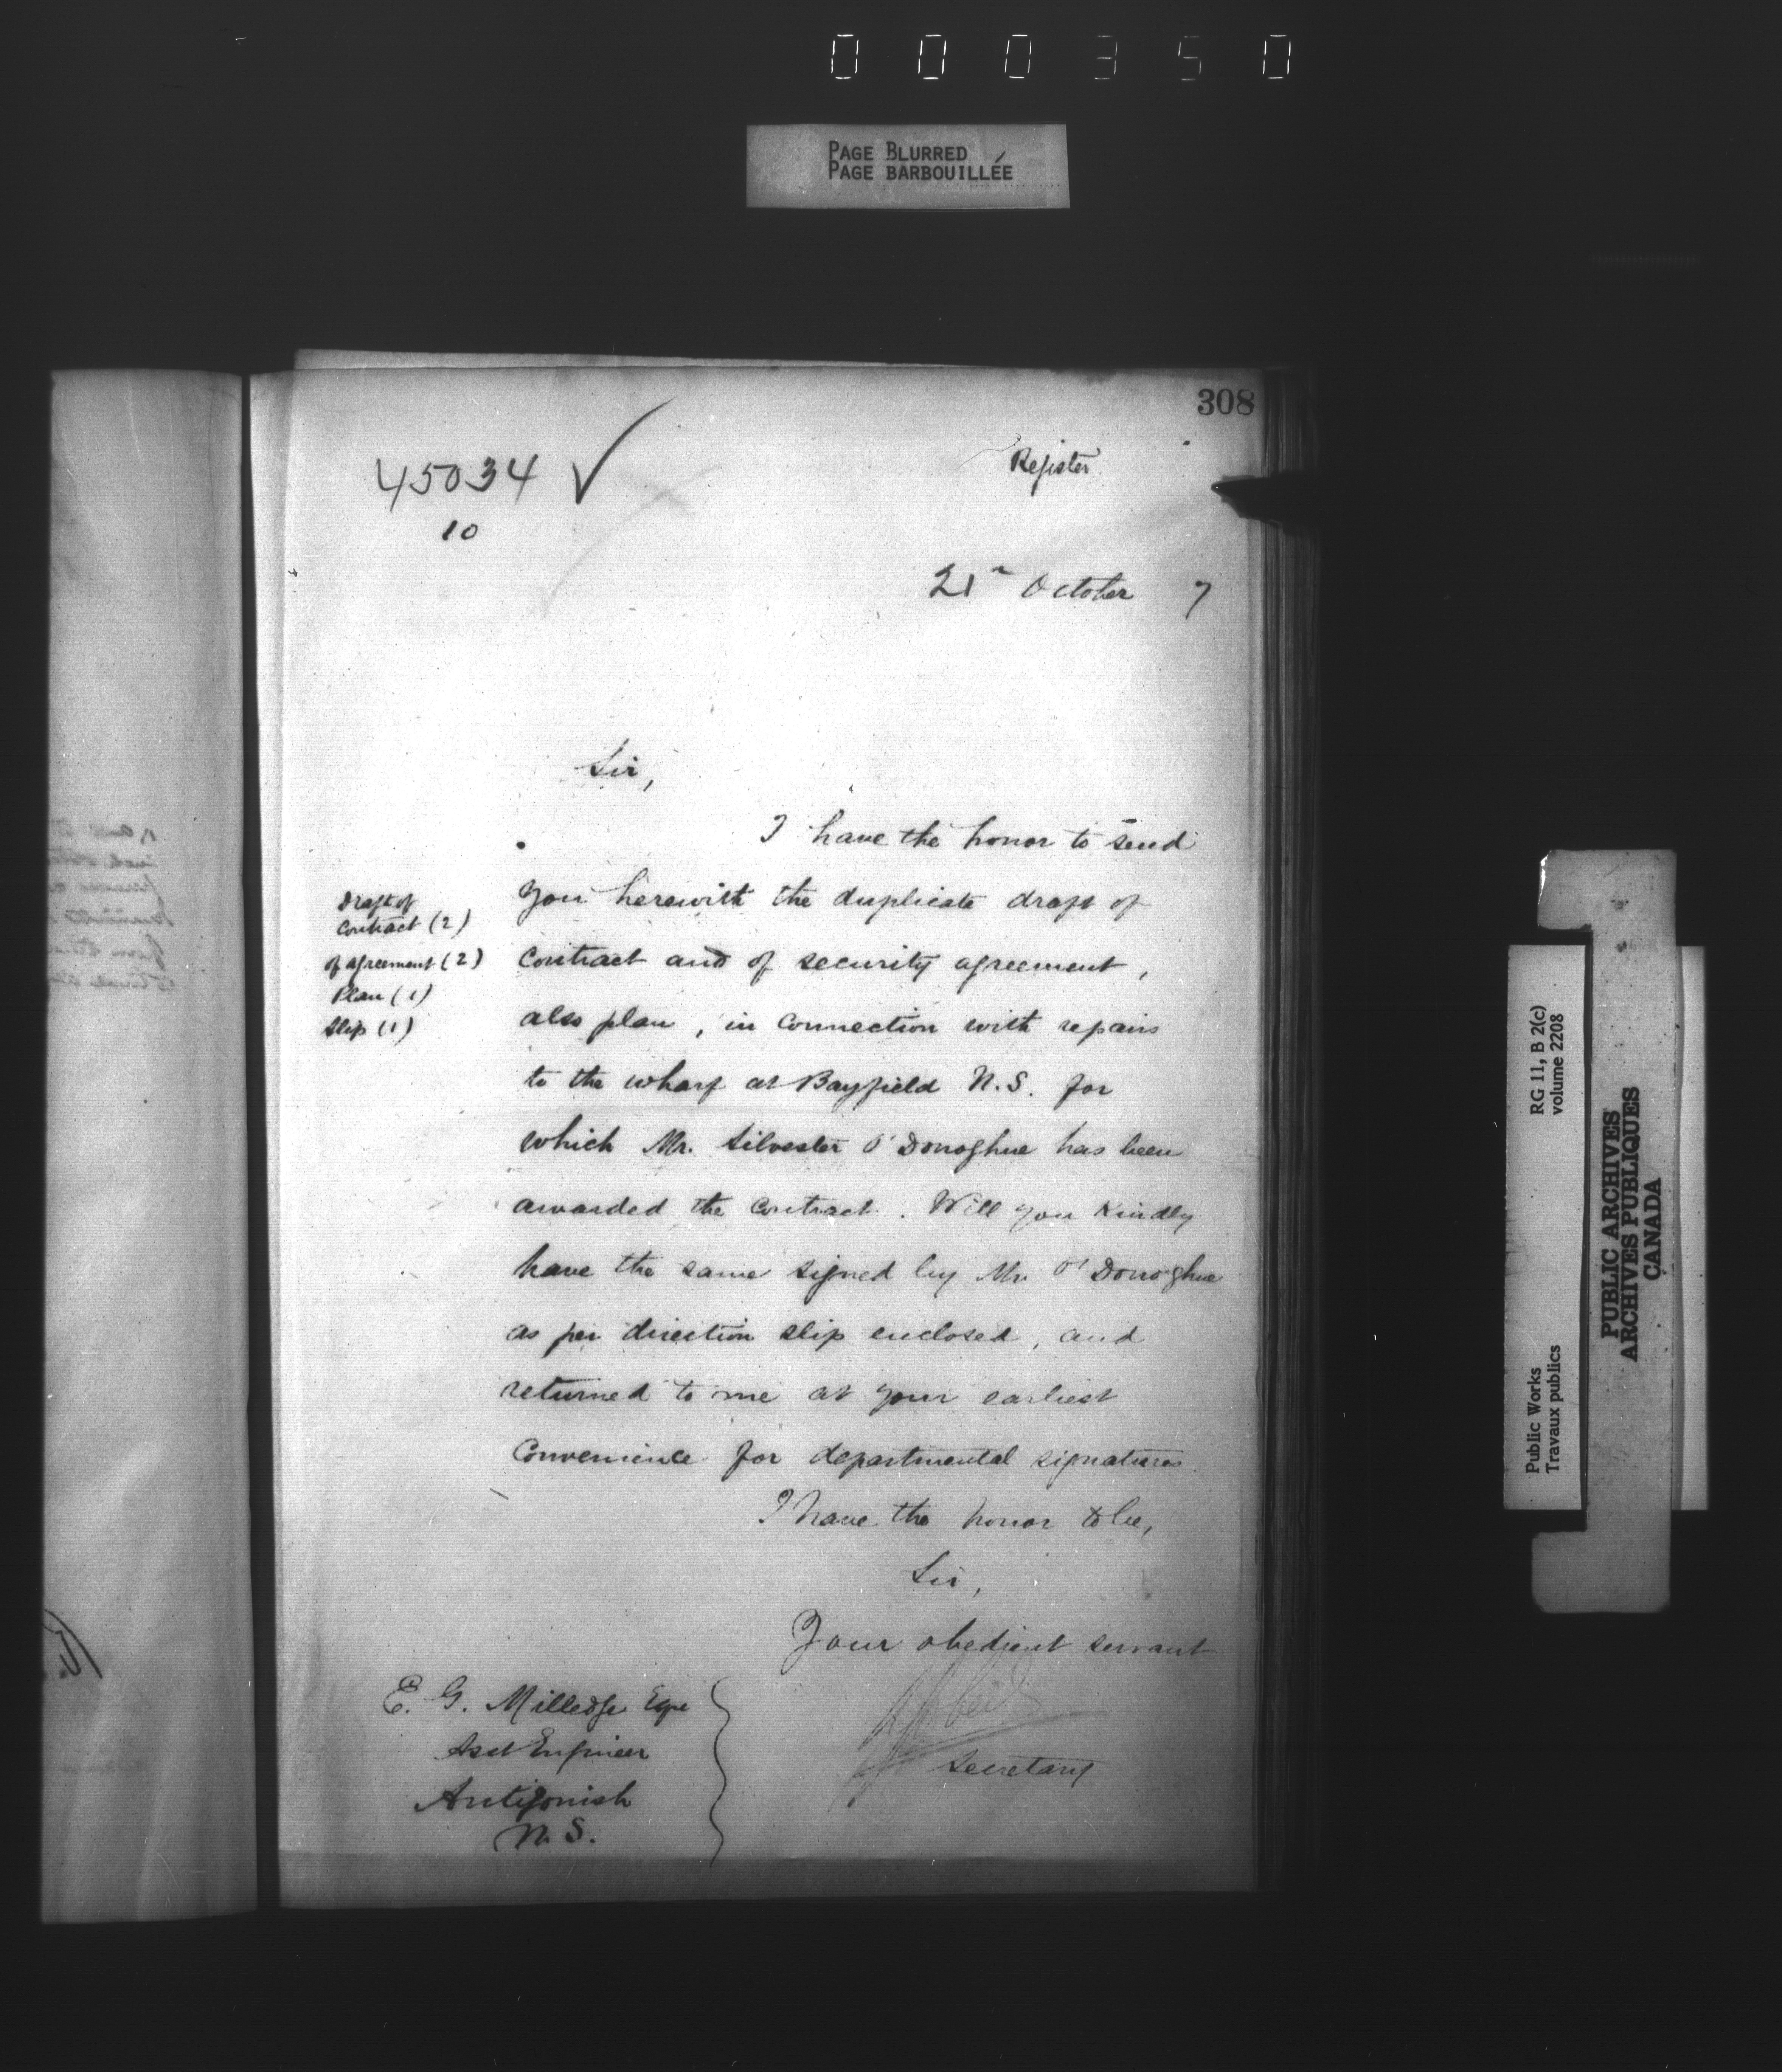 000350
PAGE BLURRED
PAGE BARBOUILLÉE
308
45034 ✓
10
Register
21st October 7
Sir,
I have the honor to send
you herewith the duplicate draft of
contract and of security agreement,
also plan, in connection with repairs
to the wharf at Bayfield N.S. for
which Mr. Silvester O'Donoghue has been
awarded the contract. Will you kindly
have the same signed by Mr O'Donoghue
as per direction slip enclosed, and
returned to me at your earliest
convenience for departmental signatures.
Draft of
contract (2)
of agreement (2)
Plan (1)
slip (1)
I have the honor to be,
Sir,
Your obedient servant
Secretary
E. G. Milledge Esqre
Asst Engineer
Antigonish
N. S.
RG 11, B 2(c)
volume 2208
Public Works
Travaux publics
PUBLIC ARCHIVES
ARCHIVES PUBLIQUES
CANADA